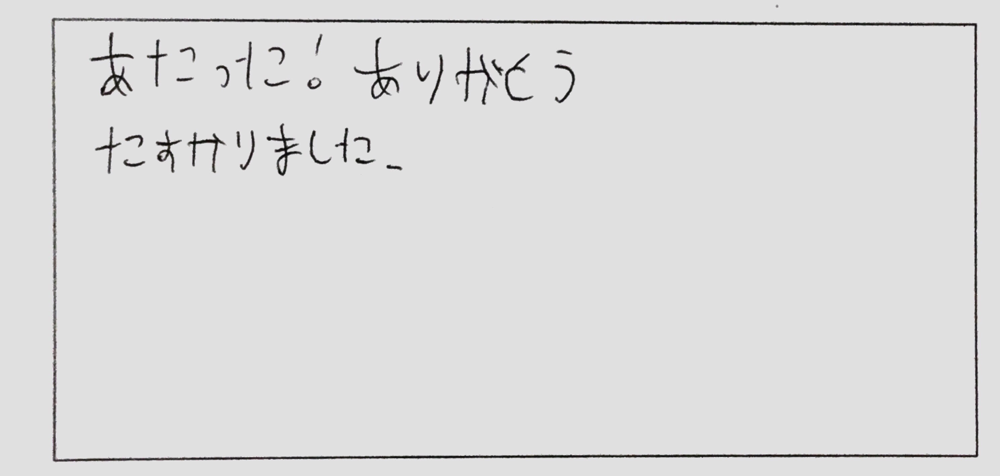 あたった！ありがとう
たすかりました_